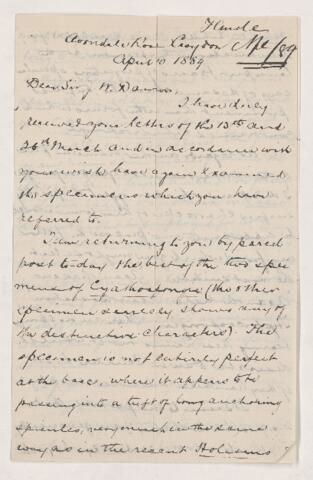 Hinde
Avondale Road Croydon Ap/89
April 10 1889
Dear Sir W. Dawson,
I have duly
received your letters of the 13th and
26th March and in accordance with
your wish have again examined
the specimens which you have
referred to.
I am returning to you by parcel
post to-day the best of the two spe
mens of Cyathospongia (the other
specimen scarcely shows any of
the distinctive characters). The
specimen is not entirely perfect
at the base, where it appears to be
passing into a tuft of long anchoring
spicules, very much in the same
way as in the recent